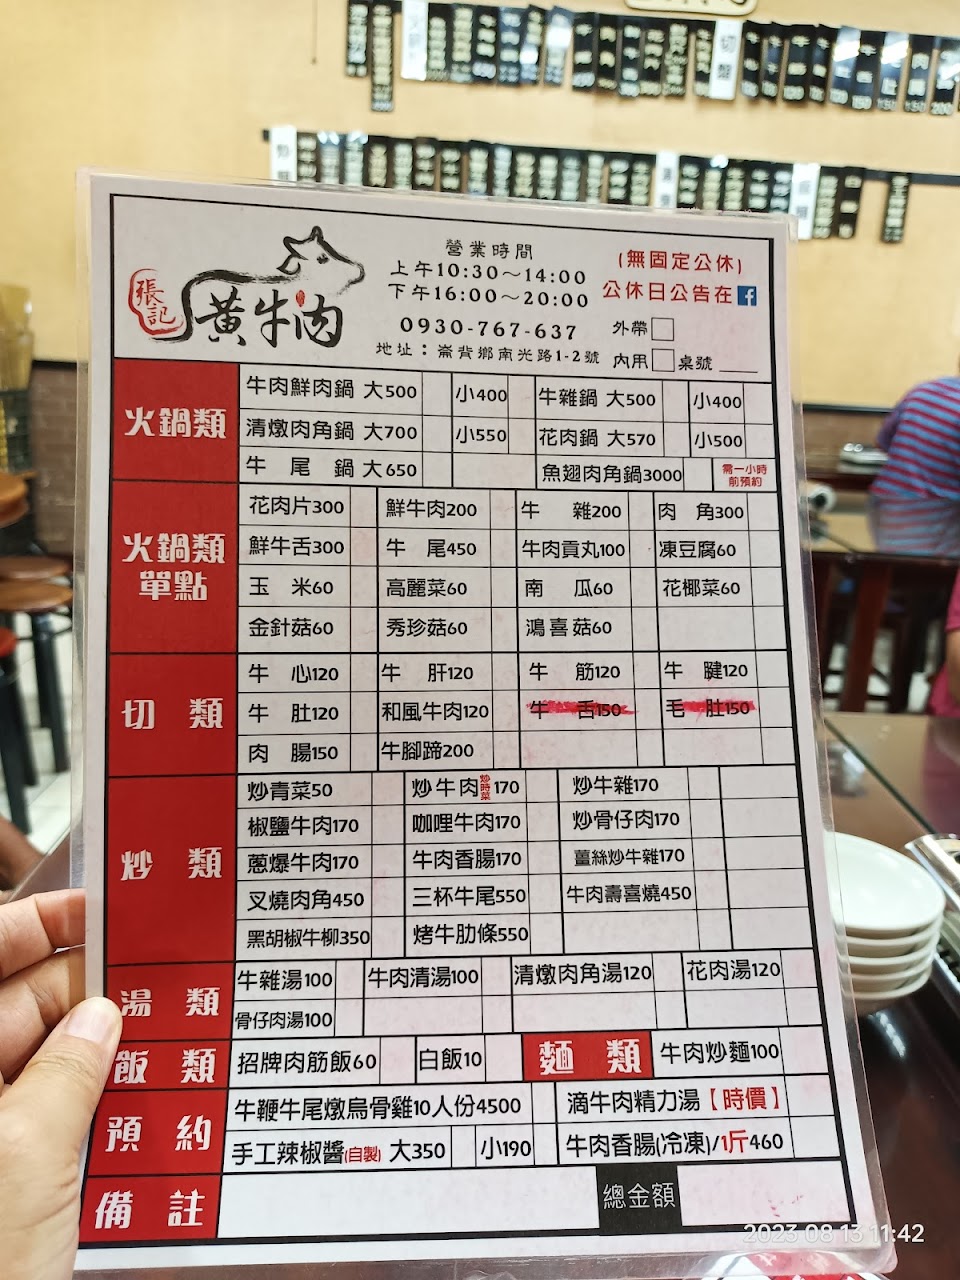 切盤
張記
黃牛肉
營業時間
上午10:30～14:00
下午16:00～20:00
(無固定公休)
公休日公告在f
0930-767-637
外帶
地址：崙背鄉南光路1-2號
內用 桌號
火鍋類
牛肉鮮肉鍋 大500 小400 牛雜鍋 大500 小400
清燉肉角鍋 大700 小550 花肉鍋 大570 小500
牛 尾 鍋 大650 魚翅肉角鍋3000 需一小時前預約
火鍋類單點
花肉片300 鮮牛肉200 牛 雜200 肉 角300
鮮牛舌300 牛 尾450 牛肉貢丸100 凍豆腐60
玉 米60 高麗菜60 南 瓜60 花椰菜60
金針菇60 秀珍菇60 鴻喜菇60
切 類
牛 心120 牛 肝120 牛 筋120 牛 腱120
牛 肚120 和風牛肉120 牛 舌150 毛 肚150
肉 腸150 牛腳蹄200
炒 類
炒青菜50 炒牛肉炒時菜170 炒牛雜170
椒鹽牛肉170 咖哩牛肉170 炒骨仔肉170
蔥爆牛肉170 牛肉香腸170 薑絲炒牛雜170
叉燒肉角450 三杯牛尾550 牛肉壽喜燒450
黑胡椒牛柳350 烤牛肋條550
湯 類
牛雜湯100 牛肉清湯100 清燉肉角湯120 花肉湯120
骨仔肉湯100
飯 類 招牌肉筋飯60 白飯10 麵 類 牛肉炒麵100
預 約
牛鞭牛尾燉烏骨雞10人份4500 滴牛肉精力湯【時價】
手工辣椒醬(自製) 大350 小190 牛肉香腸(冷凍)/1斤460
備 註 總金額
2023 08 13 11:42